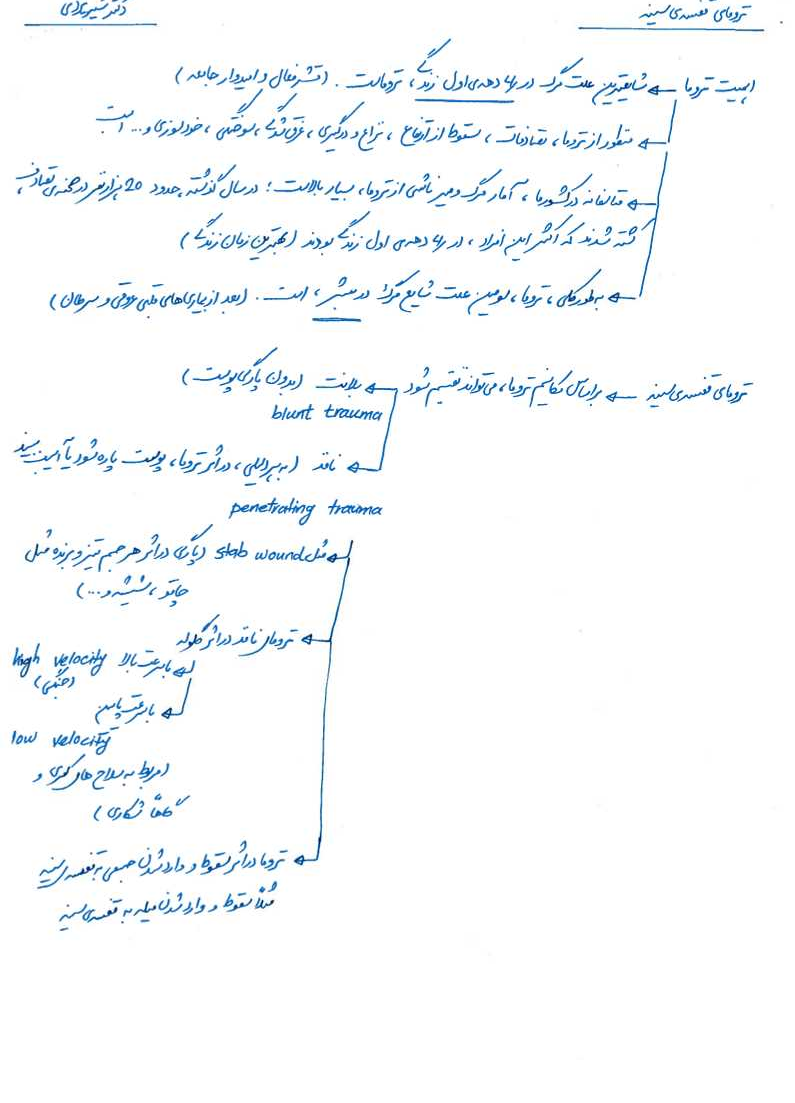 ترومای قفسه‌ی سینه
دکتر
اهمیت تروما ← شایعترین علت مرگ در سه دهه‌ی اول زندگی، تروماست. (قشر فعال و امیدوار جامعه)
منظور از تروما، تصادفات، سقوط از ارتفاع، نزاع و درگیری، غرق‌شدگی، سوختگی، خودسوزی و... است
متأسفانه در کشور ما، آمار مرگ و میر ناشی از تروما، بسیار بالاست؛ در سال گذشته، حدود 20 هزار نفر در صحنه‌ی تصادف،
کشته شدند که اکثر این افراد، در سه دهه‌ی اول زندگی بودند (بهترین زمان زندگی)
به‌طور کلی، تروما، سومین علت شایع مرگ در بشر، است. (بعد از بیماری‌های قلبی عروقی و سرطان)
ترومای قفسه‌ی سینه ← براساس مکانیسم تروما، می‌تواند تقسیم شود ← بلانت (بدون پارگی پوست)
blunt trauma
نافذ (به هر دلیلی، در اثر تروما، پوست پاره شود یا آسیب ببیند
penetrating trauma
مثل stab wound (پارگی در اثر هر جسم تیز و برنده مثل
چاقو، شیشه و...)
ترومای نافذ در اثر گلوله
با سرعت بالا high velocity
(جنگی)
با سرعت پایین
low velocity
(مربوط به سلاح های کمری و
گاهاً شکاری)
تروما در اثر سقوط و وارد شدن جسمی به قفسه‌ی سینه
مثلاً سقوط و وارد شدن میله به قفسه‌ی سینه